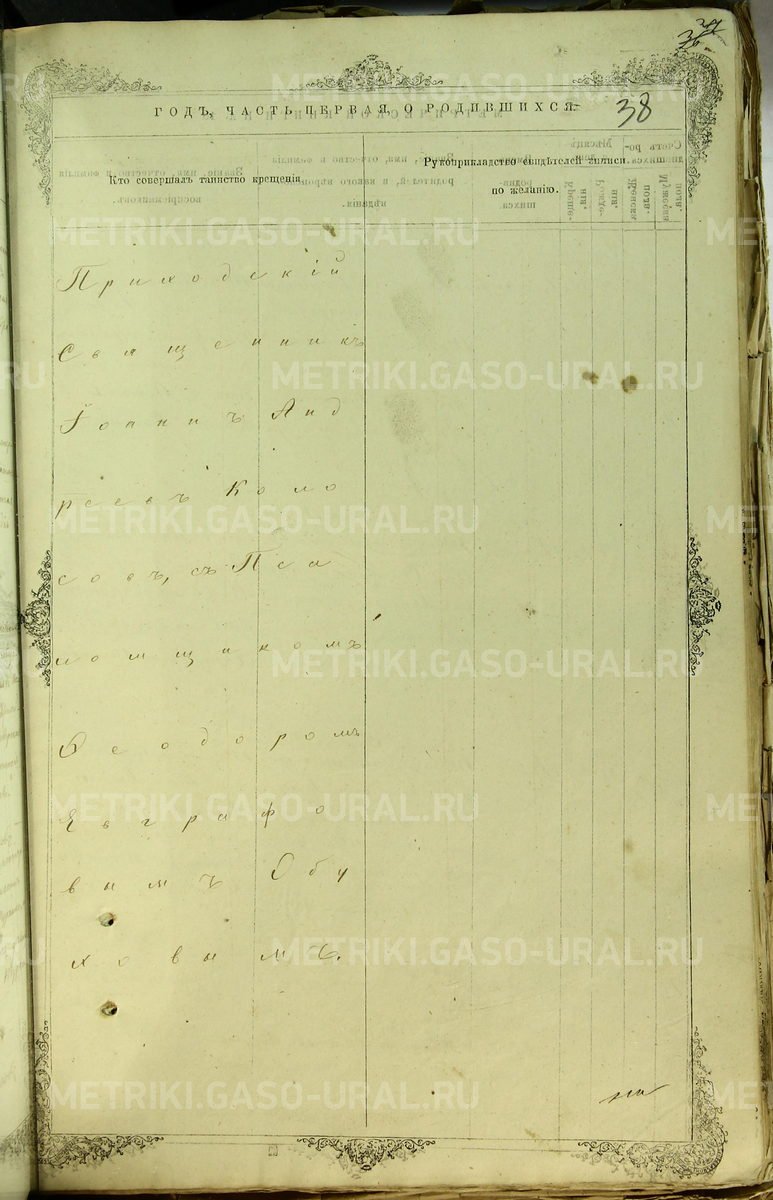 38
ГОДЪ, ЧАСТЬ ПЕРВАЯ, О РОДИВШИХСЯ.
Кто совершалъ таинство крещенія.
Рукоприкладство свидѣтелей записи
по желанію.
Приходскій
Священникъ
Іоаннъ Анд
реевъ Коло
совъ, съ Пса
ломщикомъ
Ѳеодоромъ
Евграфо
вымъ Обу
ховымъ.
METRIKI.GASO-URAL.RU